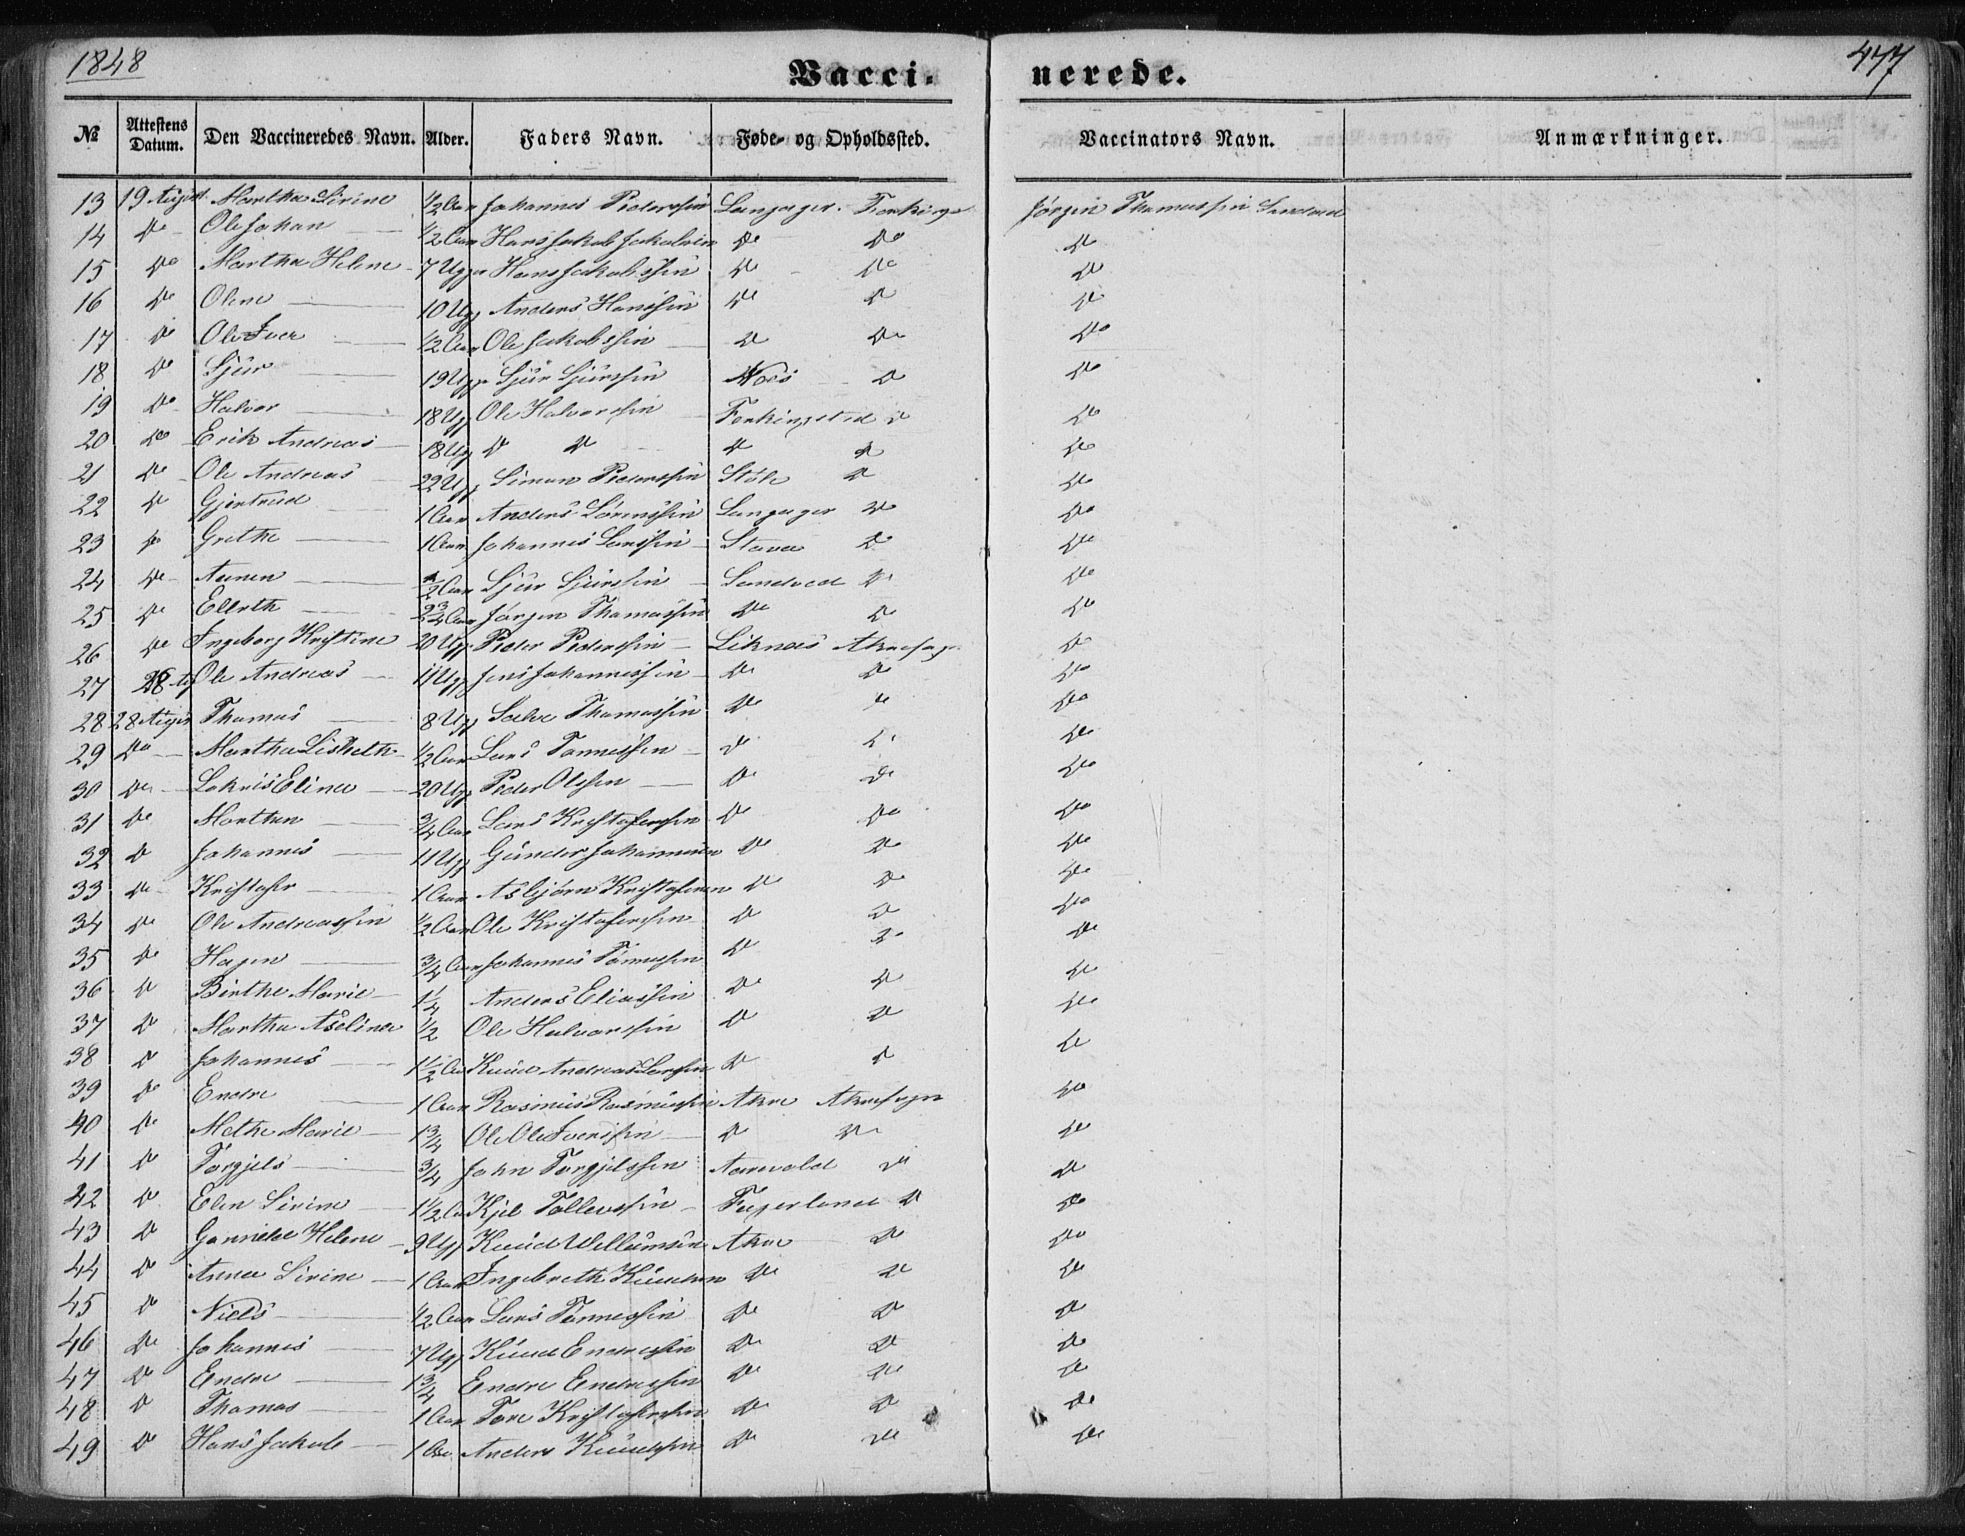 1848
477
Vacci- nerede.
№ Attestens Datum. Den Vaccineredes Navn. Alder. Faders Navn. Føde- og Opholdssted. Vaccinators Navn. Anmærkninger.
13 19 August Martha Sirine ½ Aar Johannes Pedersen Langager. Jørgen Thamassen Sandved
14 Do Ole Johan ½ Aar Hans Jakob Jakobsen Do Do Do
15 Do Martha Helene 7 Uger Hans Jakobssen Do Do Do
16 Do Olene 10 Ug Anders Hanssen Do Do Do
17 Do Ole Iver ½ Aar Ole Jakobssen Do Do Do
18 Do Sjur 19 Ug Sjur Sjurssen Næs Do Do
19 Do Halvor 18 Ug Ole Halvorssen Ferkingstad Do Do
20 Do Erik Andreas 18 Ug Do Do Do Do Do
21 Do Ole Andreas 22 Ug Simon Pederssen Støle Do Do
22 Do Gjertrud 1 Aar Anders Sørenssen Langager Do Do
23 Do Grethe 1 Aar Johannes Larssen Stava Do Do
24 Do Aanen ½ Aar Sjur Sjurssen Sandved Do Do
25 Do Ellerth 2¾ Aar Jørgen Thamassen Do Do Do
26 Do Ingeborg Kristine 20 Ug Peder Pederssen Liknes Do
27 28 Ag Ole Andreas 11 Ug Jens Johannessen Do Do Do
28 28 August Thamas 8 Ug Salve Thamassen Do Do Do
29 Do Martha Lisbeth ½ Aar Lars Tønnessen Do Do Do
30 Do Elina 20 Ug Peder Olssen Do Do Do
31 Do Marthen ¾ Aar Lars Kristoferssen Do Do Do
32 Do Johannes 11 Ug Gunder Johannesen Do Do Do
33 Do Kristofer 1 Aar Asbjørn Kristofersen Do Do Do
34 Do Ole Andreassen ½ Aar Ole Kristoferssen Do Do Do
35 Do Hagen ¾ Aar Johannes Tønnessen Do Do Do
36 Do Birthe Marie 1¼ Anders Eliassen Do Do Do
37 Do Martha Aselina ½ Ole Halvorssen Do Do Do
38 Do Johannes 1½ Aa Knud Andreas Larssen Do Do Do
39 Do Endre 1 Aar Rasmus Rasmussen Akre Akresogn Do
40 Do Methe Marie 1¾ Ole Ole Iverssen Do Do Do
41 Do Torgjels ¾ John Torgjelssen Do Do
42 Do Elen Sirine 1½ Aa Kjel Tollevssen Fagerland Do Do
43 Do Gunnild Helene 9 Ug Knud Willumsen Akre Do Do
44 Do Anna Sirine 1 Aar Ingebreth Knudsen Do Do Do
45 Do Niels ½ Aar Lars Tønnessen Do Do Do
46 Do Johannes 7 Ug Knud Endressen Do Do Do
47 Do Endre 1¾ Endre Endressen Do Do Do
48 Do Thamas 1 Aar Tore Kristoferssen Do Do Do
49 Do Hans Jakob 1 Aa Anders Knudssen Do Do Do